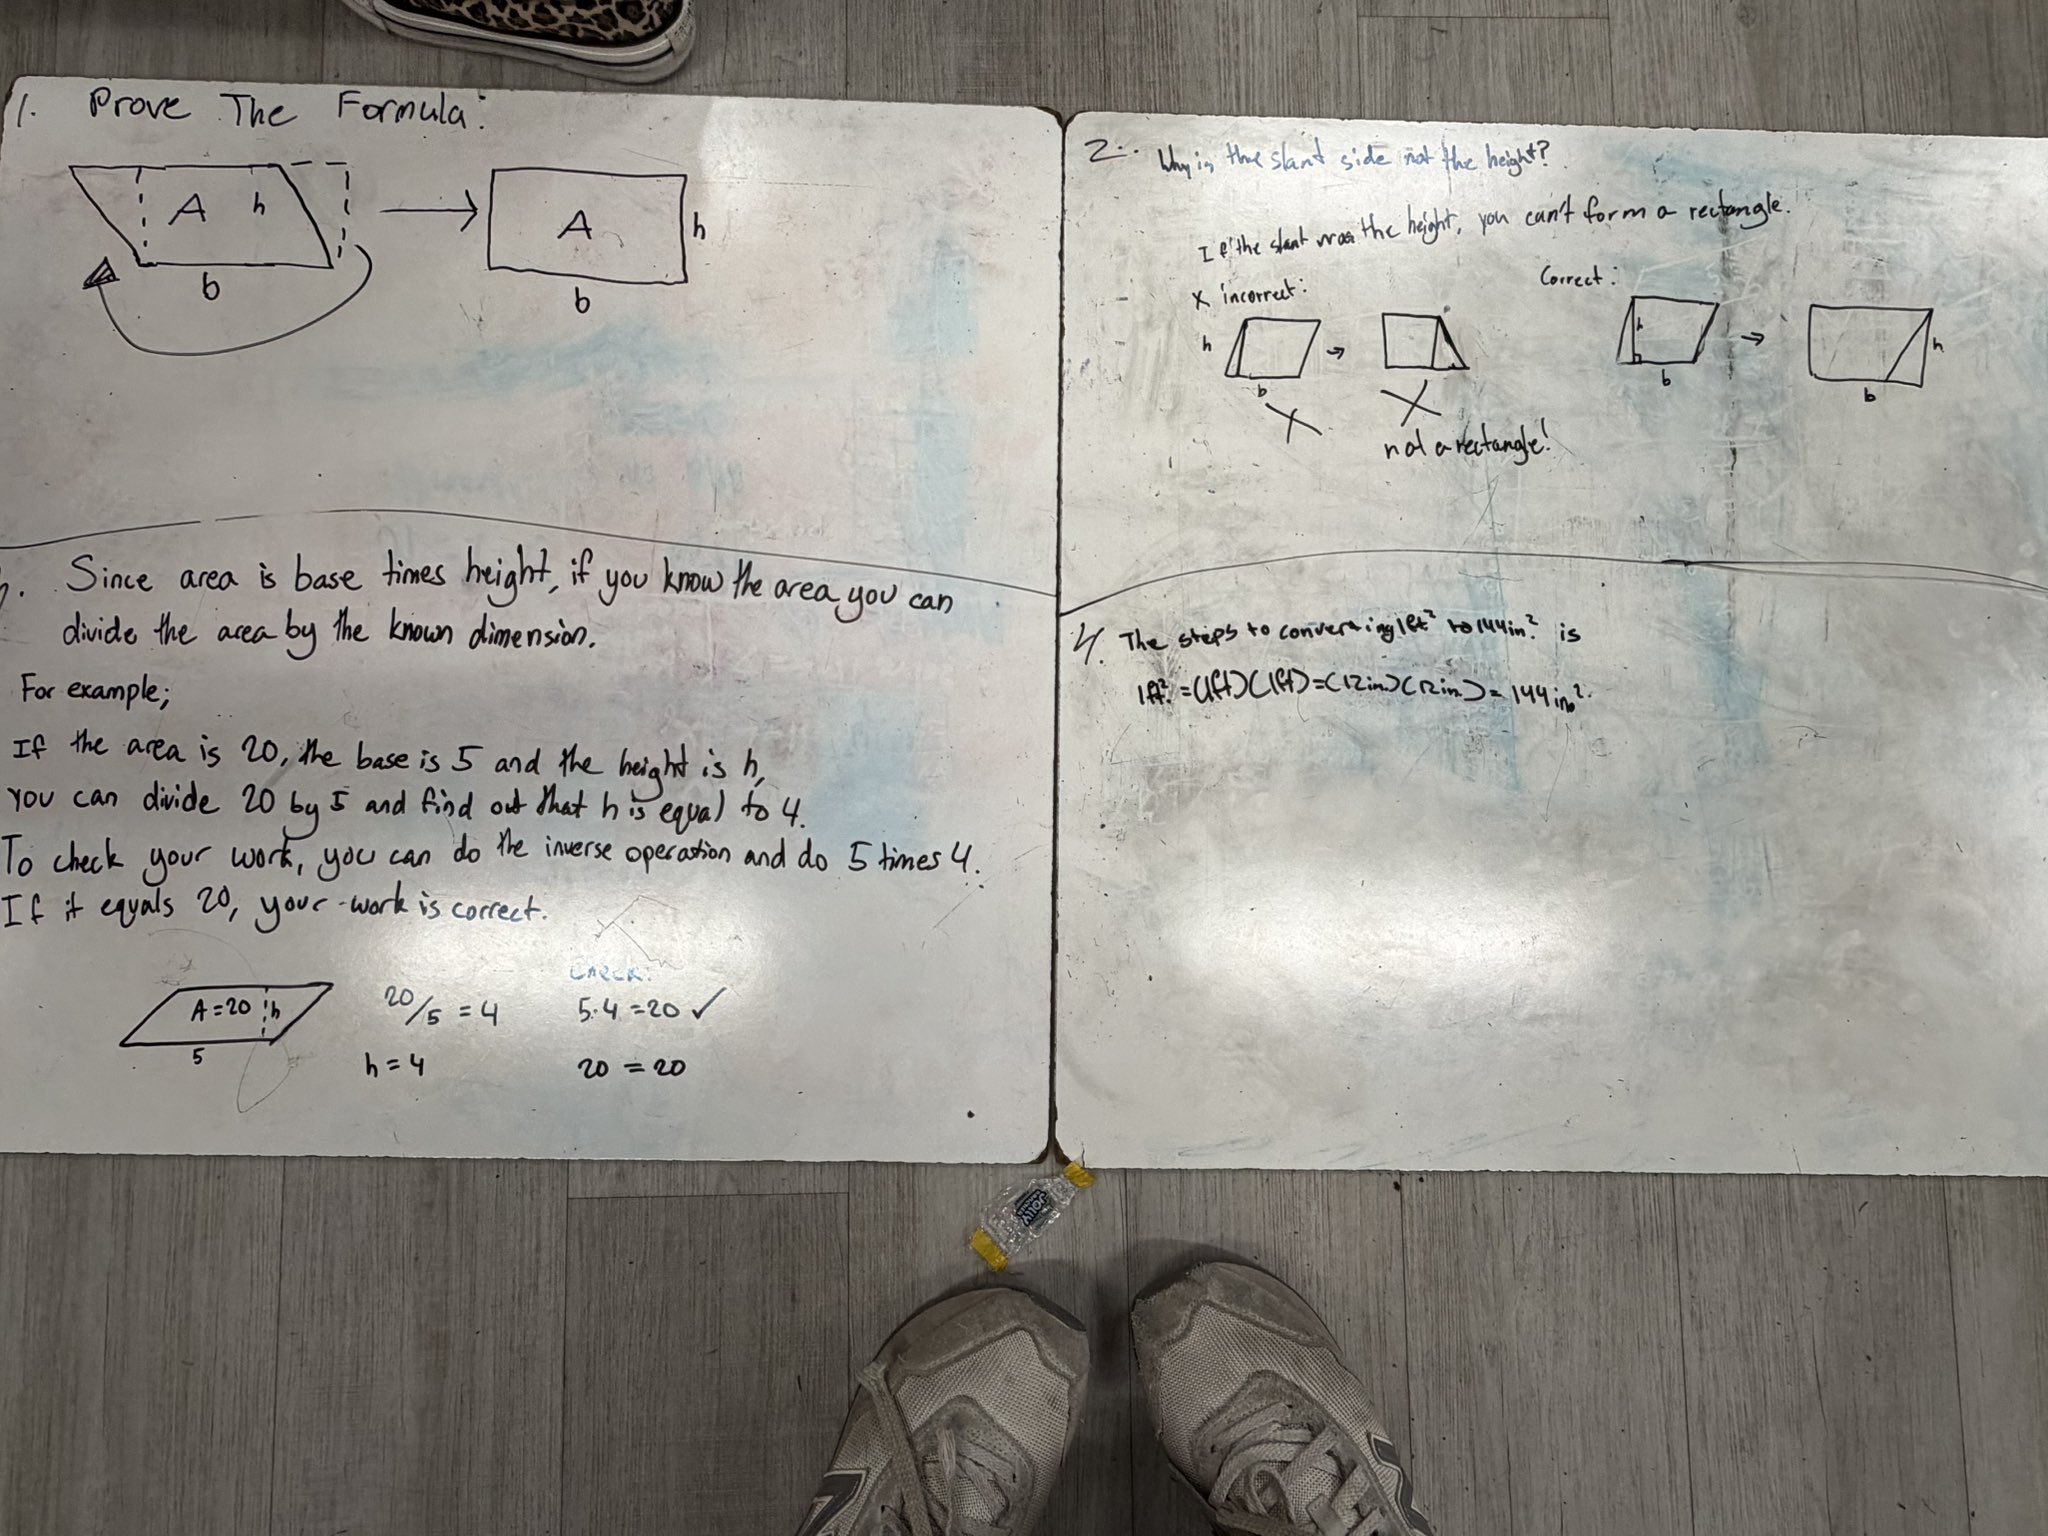 1. Prove The Formula:
A h
b
A h
b
2. Why is the slant side not the height?
If the slant was the height, you can't form a rectangle.
X incorrect:
h
b
not a rectangle!
Correct:
h
b
h
b
Since area is base times height, if you know the area you can
divide the area by the known dimension.
For example;
If the area is 20, the base is 5 and the height is h,
you can divide 20 by 5 and find out that h is equal to 4.
To check your work, you can do the inverse operation and do 5 times 4.
If it equals 20, your work is correct.
A=20 h
5
20/5 = 4
h = 4
CHECK:
5·4=20 ✓
20 = 20
4. The steps to converting 1ft² to 144in.² is
1ft.² =(1ft)(1ft)=(12in.)(12in.)=144in².
JOLLY